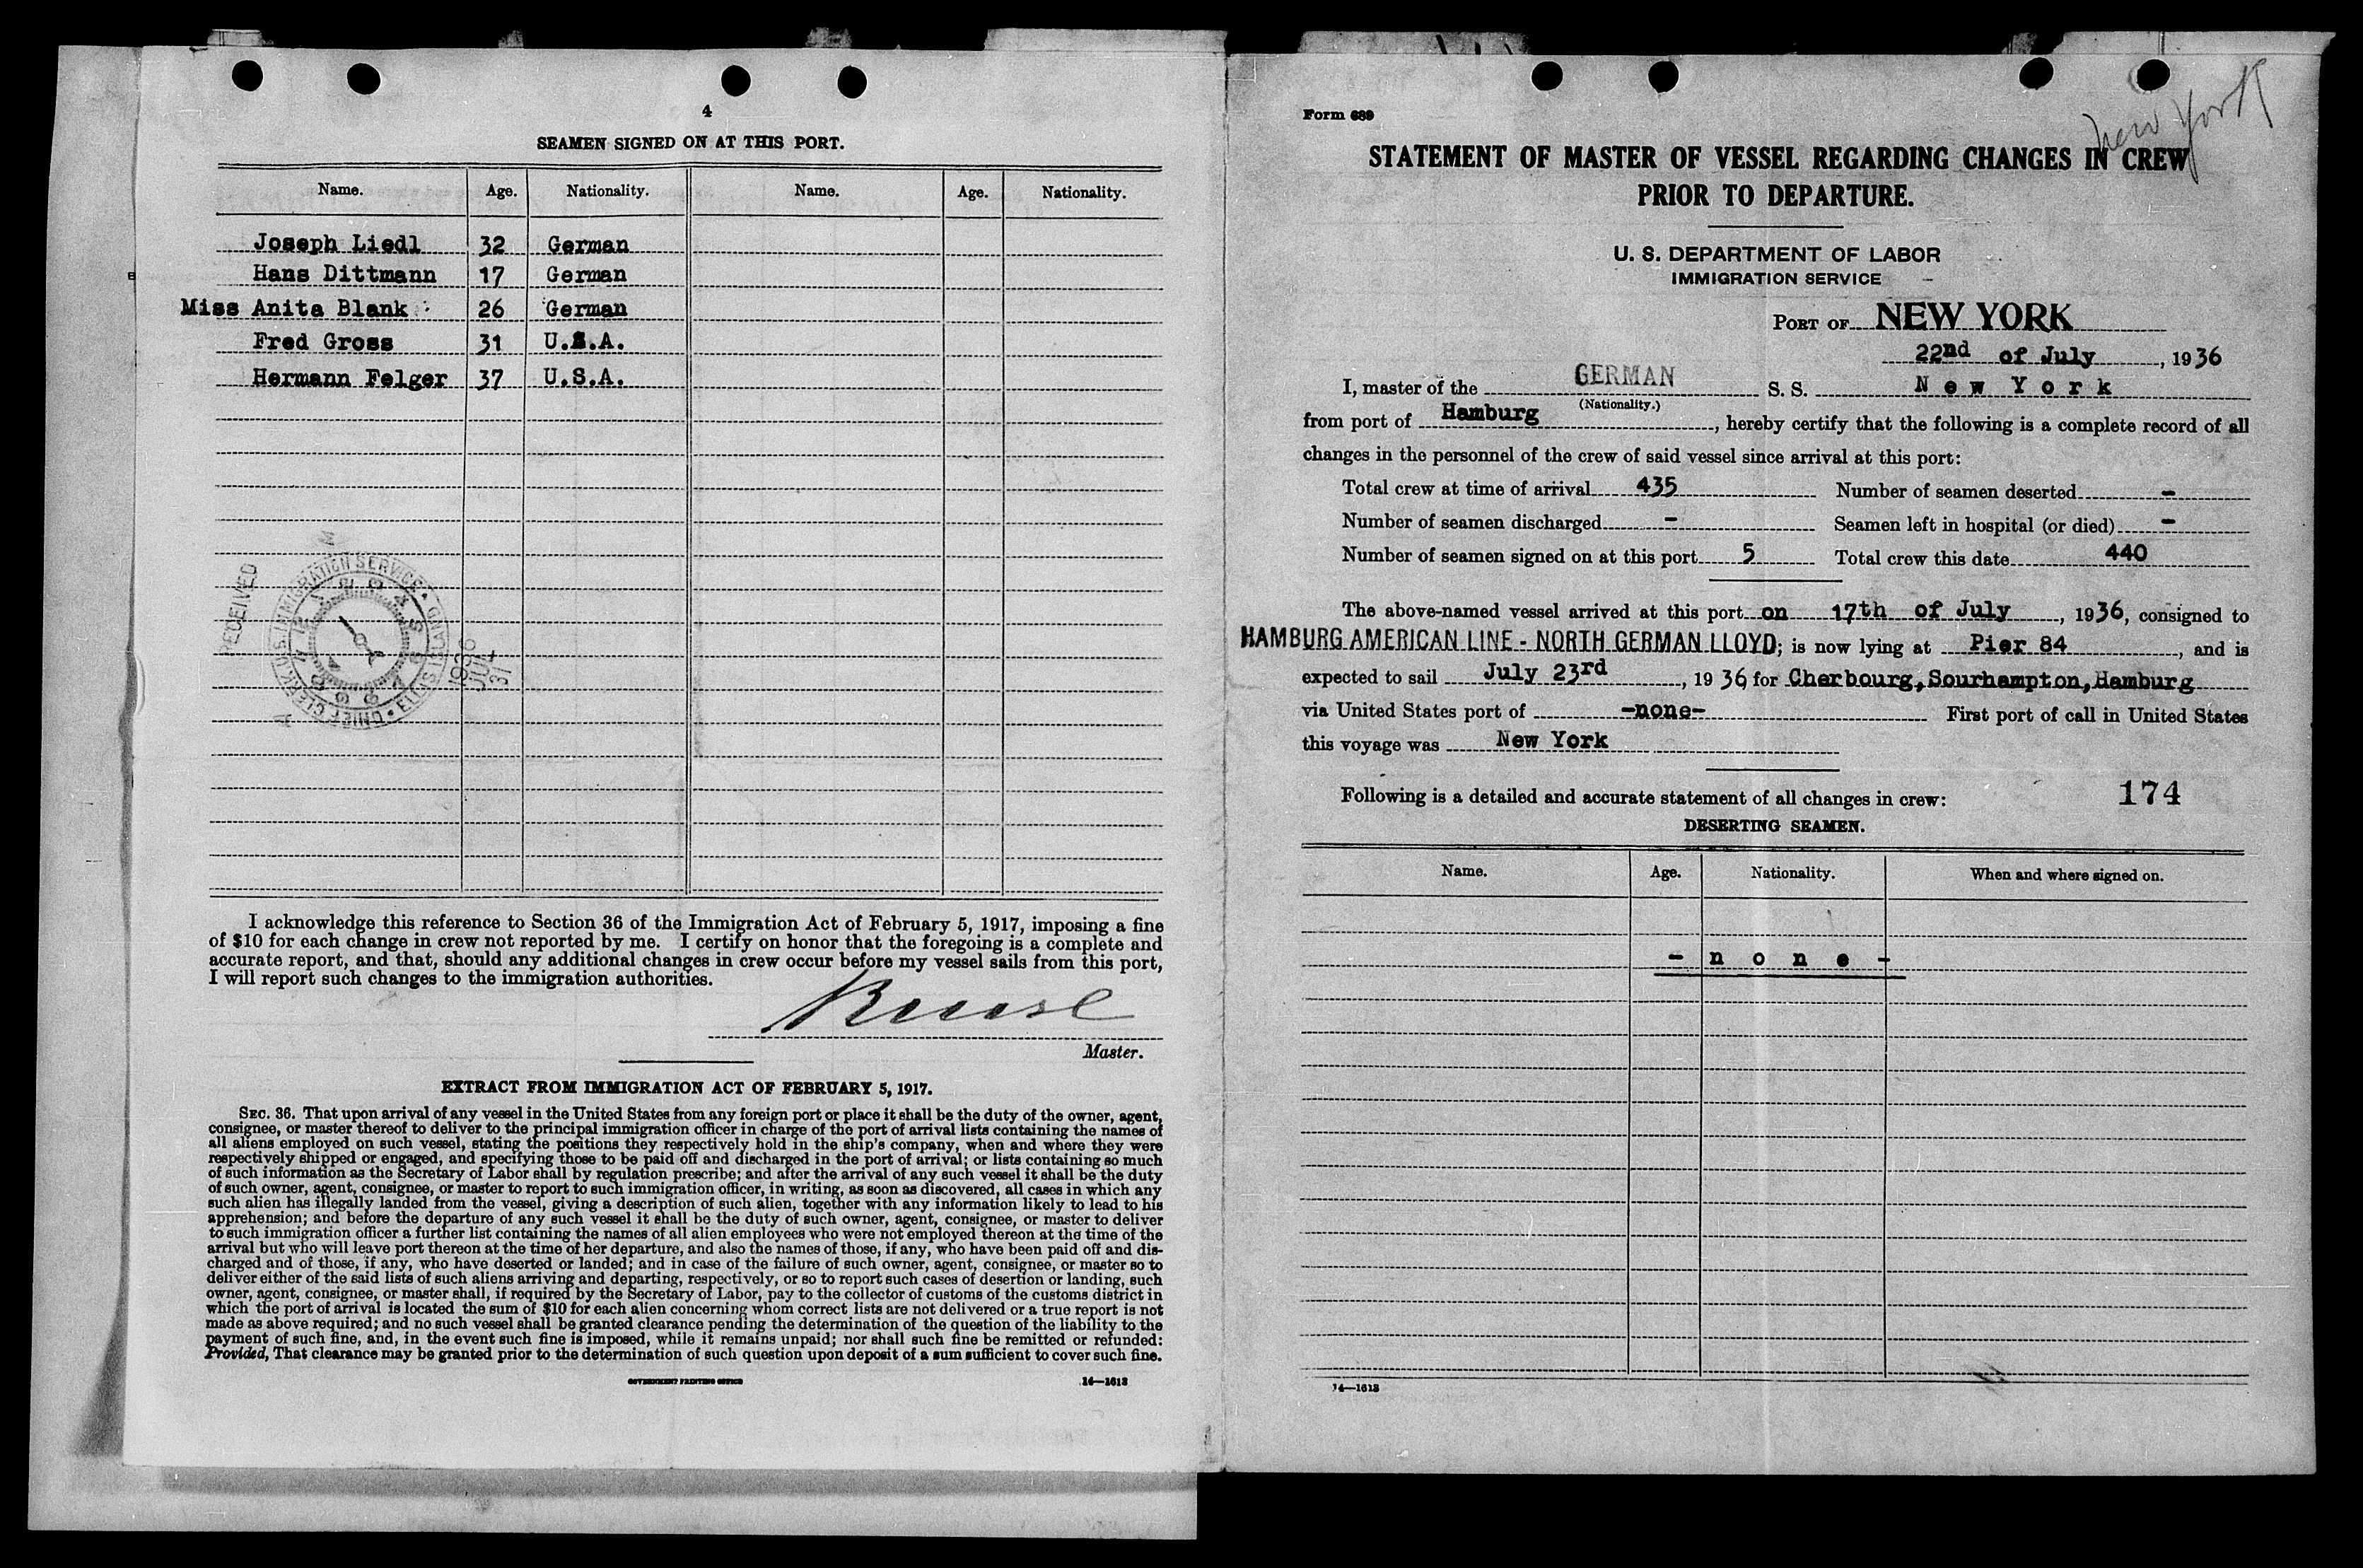 4
SEAMEN SIGNED ON AT THIS PORT.
Name. Age. Nationality. Name. Age. Nationality.
Joseph Liedl 32 German
Hans Dittmann 17 German
Miss Anita Blank 26 German
Fred Gross 31 U.S.A.
Hermann Felger 37 U.S.A.
RECEIVED
CHIEF CLERK U.S. IMMIGRATION SERVICE • ELLIS ISLAND •
1936
JUL
31
I acknowledge this reference to Section 36 of the Immigration Act of February 5, 1917, imposing a fine
of $10 for each change in crew not reported by me. I certify on honor that the foregoing is a complete and
accurate report, and that, should any additional changes in crew occur before my vessel sails from this port,
I will report such changes to the immigration authorities.
Master.
EXTRACT FROM IMMIGRATION ACT OF FEBRUARY 5, 1917.
SEC. 36. That upon arrival of any vessel in the United States from any foreign port or place it shall be the duty of the owner, agent,
consignee, or master thereof to deliver to the principal immigration officer in charge of the port of arrival lists containing the names of
all aliens employed on such vessel, stating the positions they respectively hold in the ship's company, when and where they were
respectively shipped or engaged, and specifying those to be paid off and discharged in the port of arrival; or lists containing so much
of such information as the Secretary of Labor shall by regulation prescribe; and after the arrival of any such vessel it shall be the duty
of such owner, agent, consignee, or master to report to such immigration officer, in writing, as soon as discovered, all cases in which any
such alien has illegally landed from the vessel, giving a description of such alien, together with any information likely to lead to his
apprehension; and before the departure of any such vessel it shall be the duty of such owner, agent, consignee, or master to deliver
to such immigration officer a further list containing the names of all alien employees who were not employed thereon at the time of the
arrival but who will leave port thereon at the time of her departure, and also the names of those, if any, who have been paid off and dis-
charged and of those, if any, who have deserted or landed; and in case of the failure of such owner, agent, consignee, or master so to
deliver either of the said lists of such aliens arriving and departing, respectively, or so to report such cases of desertion or landing, such
owner, agent, consignee, or master shall, if required by the Secretary of Labor, pay to the collector of customs of the customs district in
which the port of arrival is located the sum of $10 for each alien concerning whom correct lists are not delivered or a true report is not
made as above required; and no such vessel shall be granted clearance pending the determination of the question of the liability to the
payment of such fine, and, in the event such fine is imposed, while it remains unpaid; nor shall such fine be remitted or refunded:
Provided, That clearance may be granted prior to the determination of such question upon deposit of a sum sufficient to cover such fine.
GOVERNMENT PRINTING OFFICE 14—1613
New York
Form 689
STATEMENT OF MASTER OF VESSEL REGARDING CHANGES IN CREW
PRIOR TO DEPARTURE.
U. S. DEPARTMENT OF LABOR
IMMIGRATION SERVICE
PORT OF NEW YORK
22nd of July, 1936
I, master of the GERMAN S. S. New York
(Nationality.)
from port of Hamburg, hereby certify that the following is a complete record of all
changes in the personnel of the crew of said vessel since arrival at this port:
Total crew at time of arrival 435 Number of seamen deserted -
Number of seamen discharged - Seamen left in hospital (or died) -
Number of seamen signed on at this port 5 Total crew this date 440
The above-named vessel arrived at this port on 17th of July, 1936, consigned to
HAMBURG AMERICAN LINE - NORTH GERMAN LLOYD; is now lying at Pier 84, and is
expected to sail July 23rd, 1936, for Cherbourg, Sourhampton, Hamburg
via United States port of -none- First port of call in United States
this voyage was New York
Following is a detailed and accurate statement of all changes in crew: 174
DESERTING SEAMEN.
Name. Age. Nationality. When and where signed on.
- n o n e -
14—1613